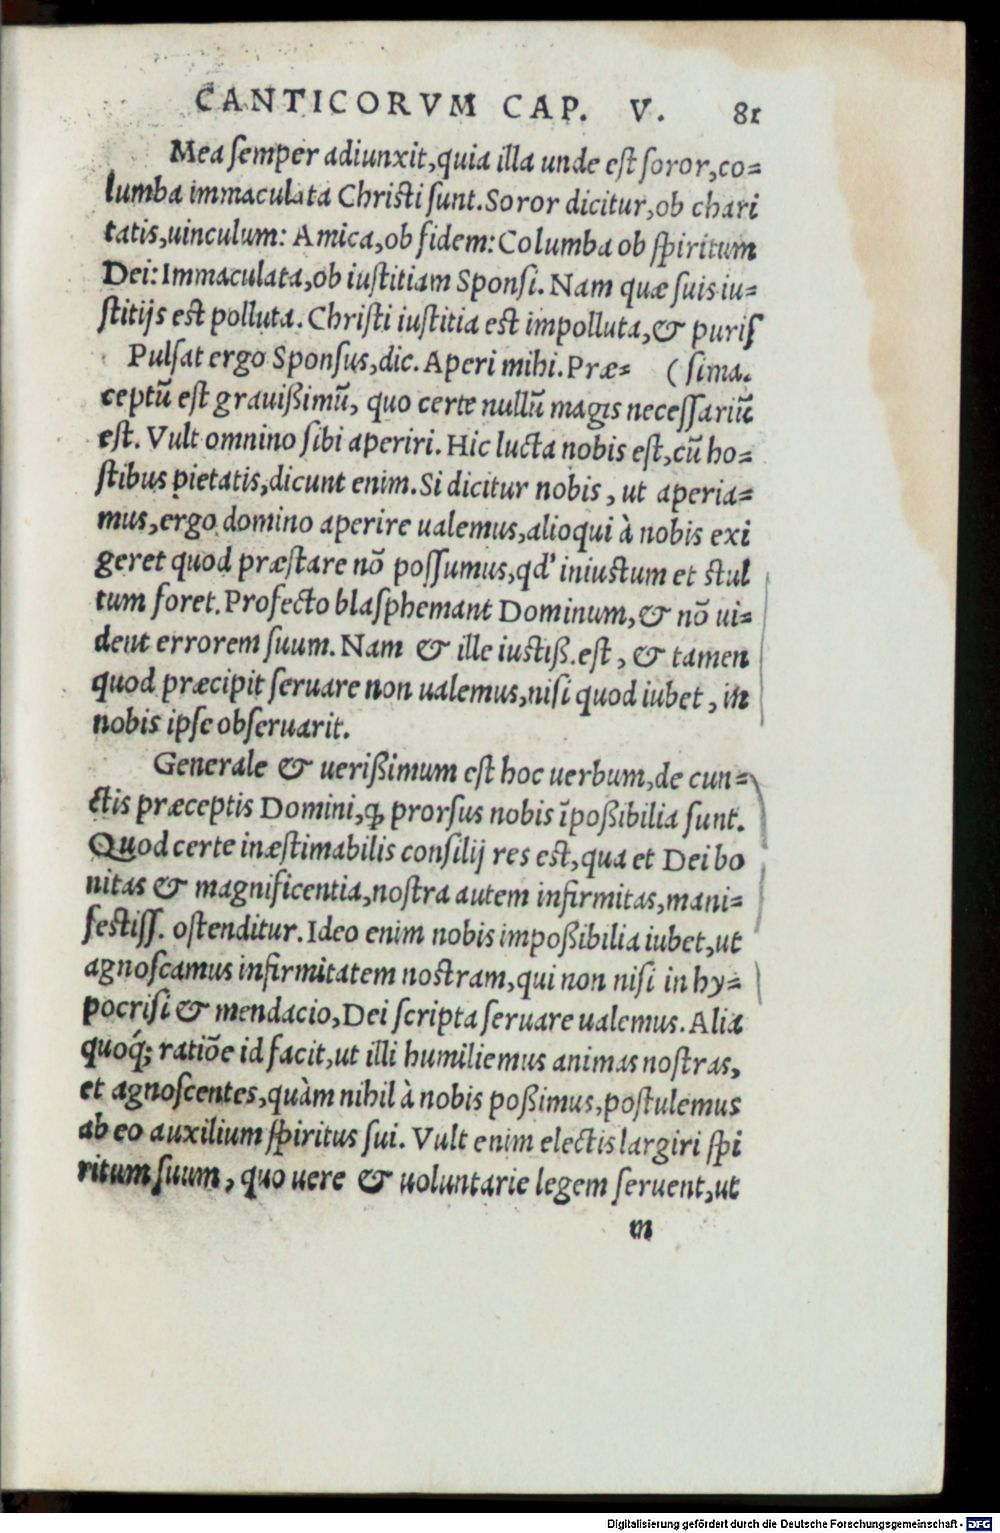 CANTICORVM CAP. V. 81
Mea ſemper adiunxit,quia illa unde eſt ſoror,co=
lumba immaculata Chriſti ſunt.Soror dicitur,ob chari
tatis,uinculum: Amica,ob fidem:Columba ob ſpiritum
Dei:Immaculata,ob iuſtitiam Sponſi.Nam quæ ſuis iu=
ſtitijs eſt polluta.Chriſti iuſtitia eſt impolluta,& puriſ
Pulſat ergo Sponſus,dic.Aperi mihi.Præ= (ſima.
ceptũ eſt grauißimũ, quo certe nullũ magis neceſſariũ
eſt. Vult omnino ſibi aperiri.Hic lucta nobis eſt,cũ ho=
ſtibus pietatis,dicunt enim.Si dicitur nobis, ut aperia=
mus,ergo domino aperire ualemus,alioqui à nobis exi
geret quod præſtare nõ poſſumus,qd' iniuſtum et ſtul
tum foret.Profecto blaſphemant Dominum,& nõ ui=
dent errorem ſuum.Nam & ille iustiß.eſt, & tamen
quod præcipit ſeruare non ualemus,niſi quod iubet, in
nobis ipſe obſeruarit.
Generale & uerißimum eſt hoc uerbum,de cun=
ctis præceptis Domini,ꝙ prorſus nobis ĩpoßibilia ſunt.
Quod certe inæſtimabilis conſilij res eſt,qua et Dei bo
nitas & magnificentia,noſtra autem infirmitas,mani=
feſtiſſ. oſtenditur.Ideo enim nobis impoßibilia iubet,ut
agnoſcamus infirmitatem noſtram,qui non niſi in hy=
pocriſi & mendacio,Dei ſcripta ſeruare ualemus.Alia
quoq́; ratiõe id facit,ut illi humiliemus animas noſtras,
et agnoſcentes,quàm nihil à nobis poßimus,poſtulemus
ab eo auxilium ſpiritus ſui. Vult enim electis largiri ſpi
ritum ſuum, quo uere & uoluntarie legem ſeruent,ut
m
Digitalisierung gefördert durch die Deutsche Forschungsgemeinschaft - DFG